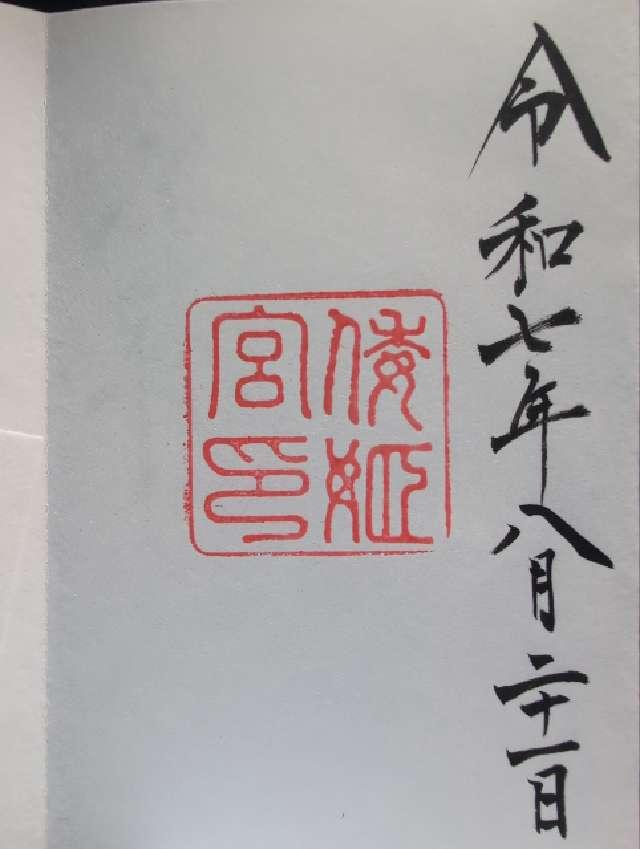 令和七年八月二十一日
倭姫
宮印